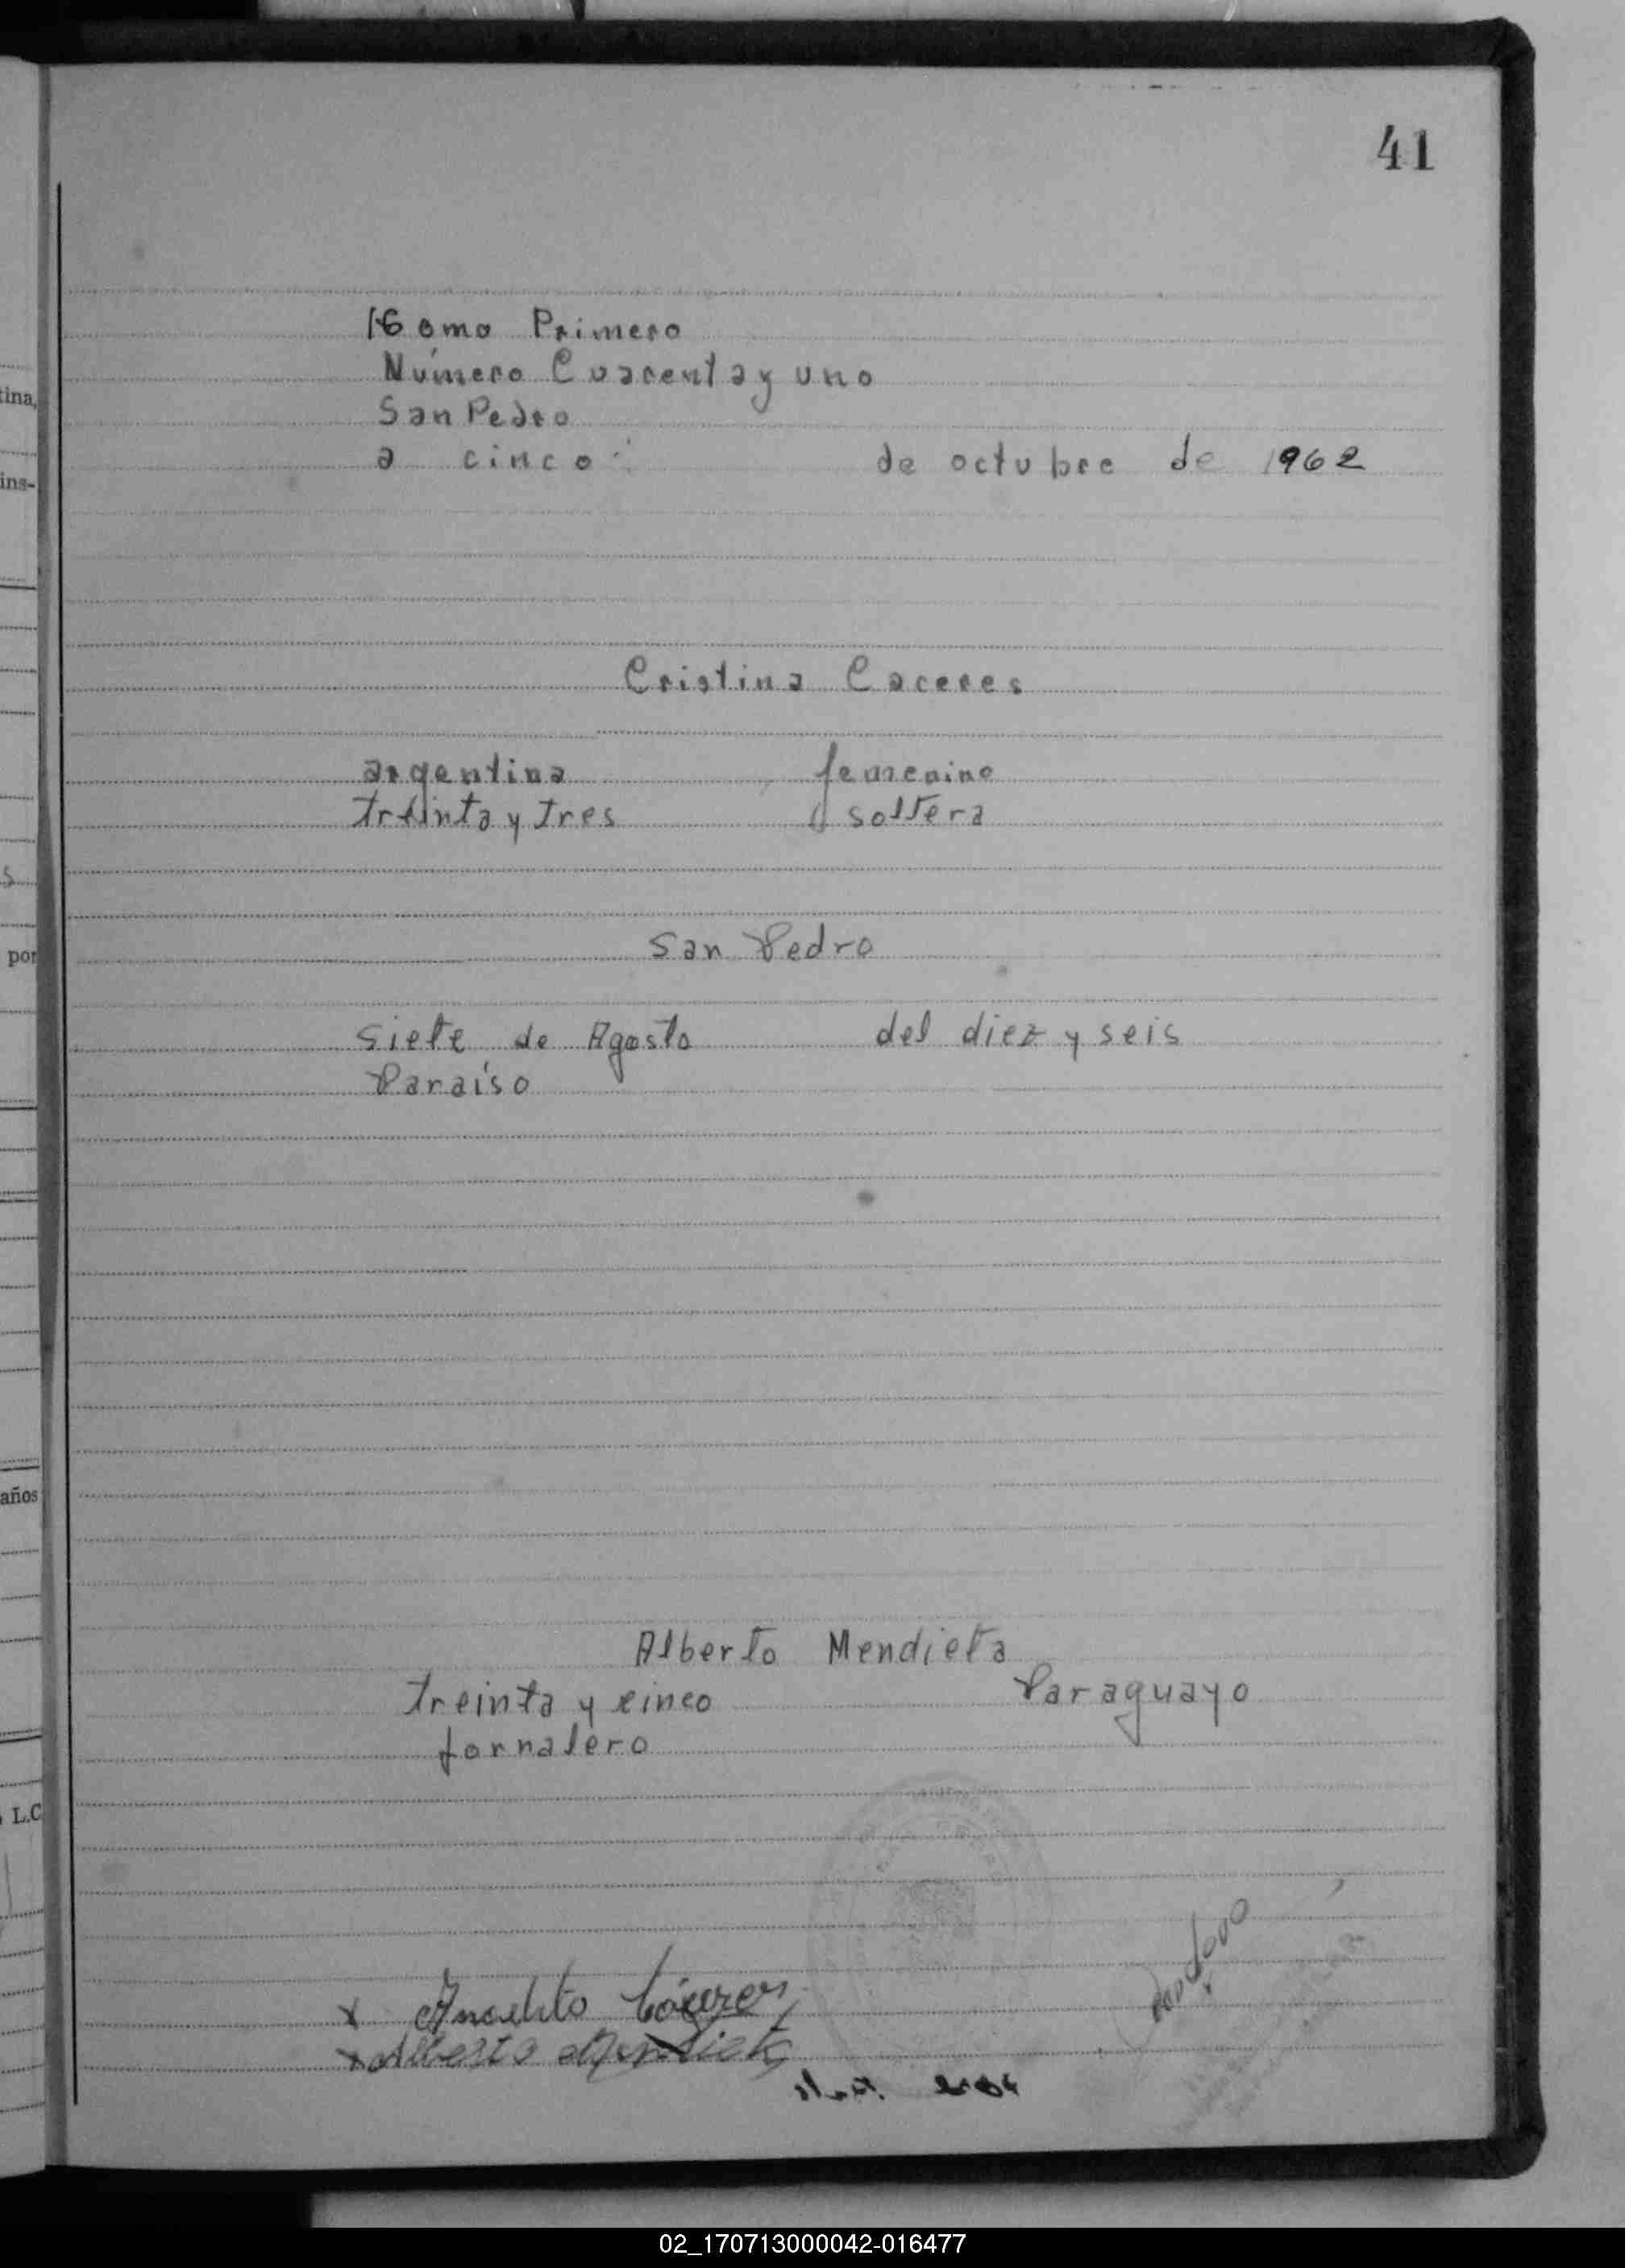 41
Tomo Primero
Número Cuarenta y uno
San Pedro
a cinco de octubre de 1962
Cristina Caceres
argentina femenino
treinta y tres soltera
San Pedro
siete de Agosto del diez y seis
Paraíso
Alberto Mendieta
treinta y cinco Paraguayo
Jornalero
x Cáceres
x Alberto Mendieta
tina,
ins-
s
por
años
L.C
02_170713000042-016477